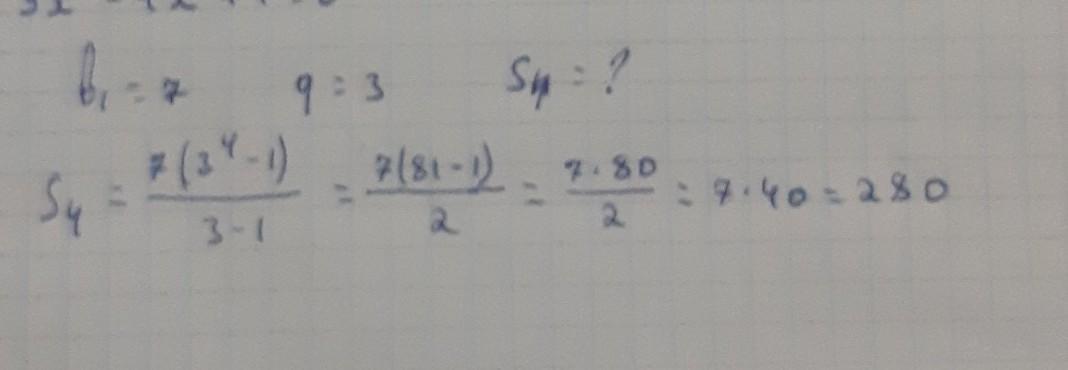 b₁ = 7 q = 3 S₄ = ?
S₄ = 7(3⁴-1)/3-1 = 7(81-1)/2 = 7·80/2 = 7·40 = 280